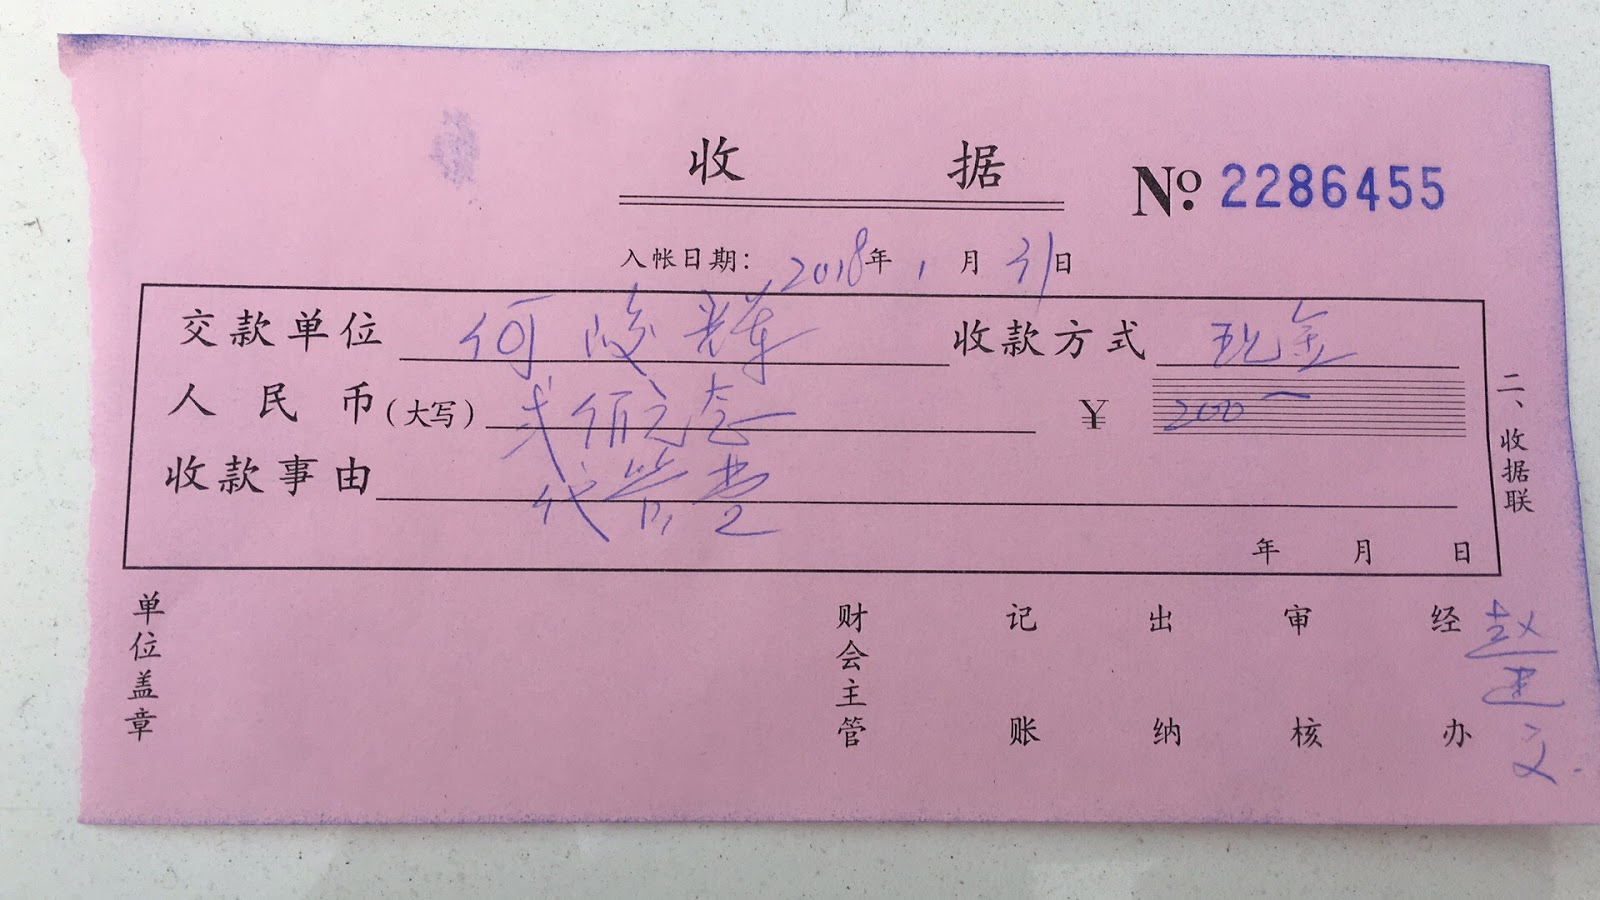 收 据
№ 2286455
入帐日期: 2018年 1 月 31日
交款单位 何峻辉 收款方式 现金
人民币(大写) 贰佰元整 ¥ 200
收款事由 代管费
年 月 日
二、收据联
单位盖章 财会主管 记账 出纳 审核 经办 赵建文